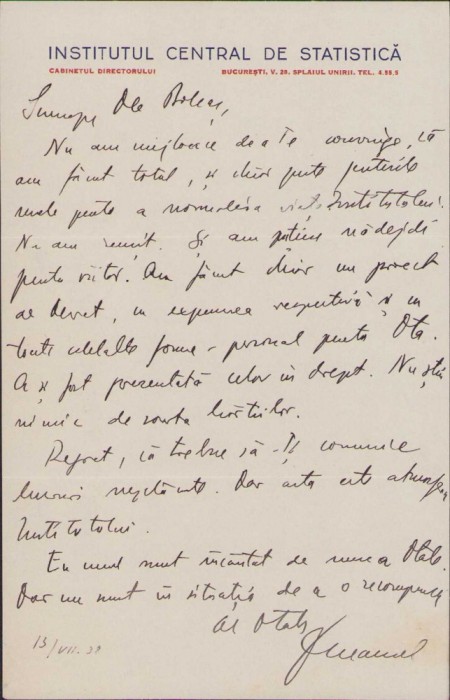 INSTITUTUL CENTRAL DE STATISTICĂ
CABINETUL DIRECTORULUI BUCUREȘTI, V. 29, SPLAIUL UNIRII. TEL. 4.99.5
Scumpe Dle
Nu am mijloace de a Te convinge, că
am făcut totul, și chiar peste puterile
mele pentru a normaliza viața Institutului.
Nu am reușit. Și am puține nădejdi
pentru viitor. Am făcut chiar un proect
de decret, cu expunerea respectivă și cu
toate celelalte forme - personal pentru Dta.
A și fost prezentată celor în drept. Nu știu
nimic de soarta hârtiilor.
Regret, că trebue să-Ți comunic
lucruri neplăcute. Dar asta este atmosfera
Institutului.
Eu unul sunt încântat de munca Dtale.
Dar nu sunt în situația de a o recompensa
al Dtale
13/VII.